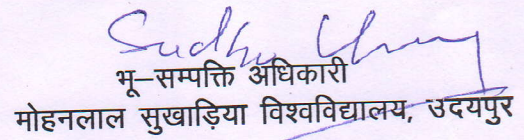 भू–सम्पक्ति अधिकारी
मोहनलाल सुखाड़िया विश्वविद्यालय, उदयपुर